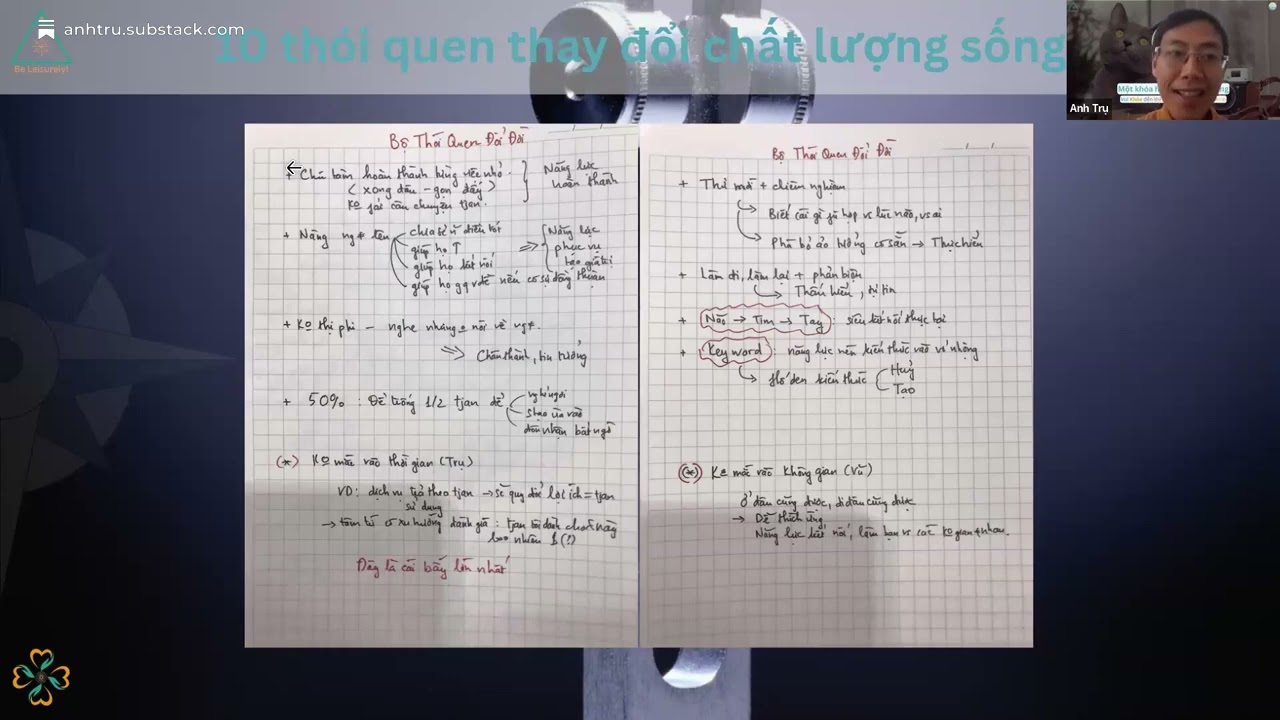 anhtru.substack.com
10 thói quen thay đổi chất lượng sống
Be Leisurely!
Một khóa
Anh Trụ
Bộ Thói Quen Đổi Đời
+ Chú tâm hoàn thành từng việc nhỏ.
( xong đâu - gọn đấy )
Ko câu chuyện tjan.
Năng lực
hoàn thành
+ Nâng ng* lên
chia sẻ điều tốt
giúp họ ↑
giúp họ kết nối
giúp họ gq vđề nếu có sự đồng thuận
⇒ Năng lực
phục vụ
+ Ko thị phi - nghe nhưng o nói về ng*.
⇒ Chân thành, tin tưởng
+ 50% : Để trống 1/2 tjan để
nghỉ ngơi
đón nhận bất ngờ
(*) Ko mắc vào thời gian (Trụ)
VD: dịch vụ trả theo tjan → sẽ quy đổi lợi ích = tjan
sử dụng
→ tâm trí có xu hướng đánh giá : tjan tôi dành cho này
bao nhiêu $ (?)
Đây là cái bẫy lớn nhất
Bộ Thói Quen Đổi Đời
+ Thử mới + chiêm nghiệm
Biết cái gì fù hợp vs lúc nào, vs ai
Phá bỏ ảo tưởng có sẵn → Thực hiểu
+ Làm đi, làm lại + phản biện
Thấu hiểu, tự tin
+ Não → Tim → Tay : siêu kết nối thực tại
+ Key word : năng lực nén kiến thức vào vi mô
Hố đen kiến thức
Huỷ
Tạo
(*) Ko mắc vào không gian (Vũ)
Ở đâu cũng được, đi đâu cũng được
→ Dễ thích ứng
Năng lực kết nối, làm bạn vs các ko gian ≠ nhau.